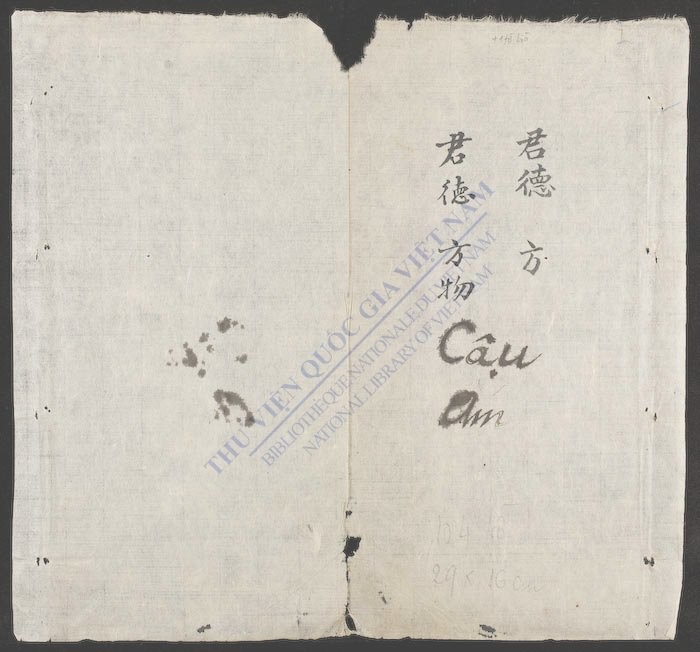 君德 方
君德 方物
Cậu
Ấm
THƯ VIỆN QUỐC GIA VIỆT NAM
BIBLIOTHÈQUE NATIONALE DU VIETNAM
NATIONAL LIBRARY OF VIETNAM
29 x 16 cm